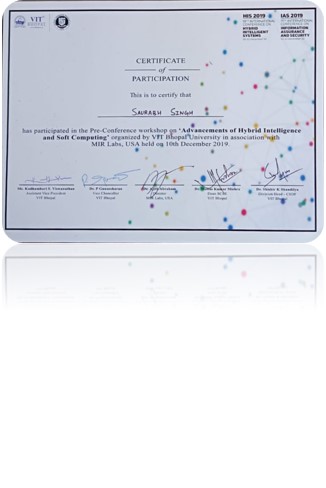 VIT
HIS 2019
IAS 2019
HYBRID
INTELLIGENT
SYSTEMS
INFORMATION
ASSURANCE
AND SECURITY
CERTIFICATE
of
PARTICIPATION
This is to certify that
SAURABH SINGH
has participated in the Pre-Conference workshop on 'Advancements of Hybrid Intelligence
and Soft Computing' organized by VIT Bhopal University in association with
MIR Labs, USA held on 10th December 2019.
Assistant Vice President
VIT Bhopal
Vice Chancellor
VIT Bhopal
Director
MIR Labs, USA
VIT Bhopal
VIT Bhopal